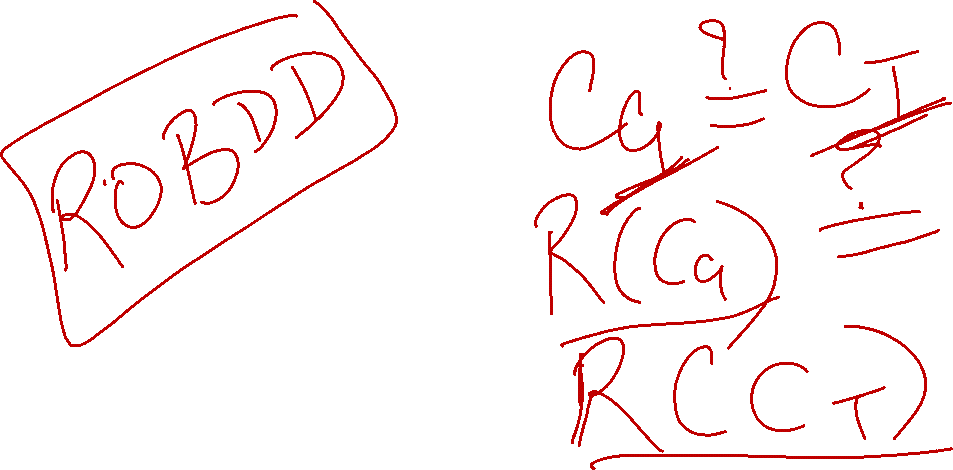 ROBDD
CG ≟ CI
R(CG) ≟
R(CI)